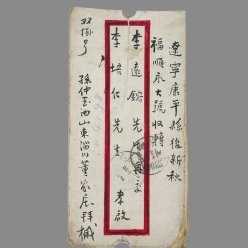 遼寧康平縣後新秋
福順永大號收轉
李遠鎔先生
李培仁先生 李啟
孫仲玉由山東淄川董家庄拜緘
双掛号